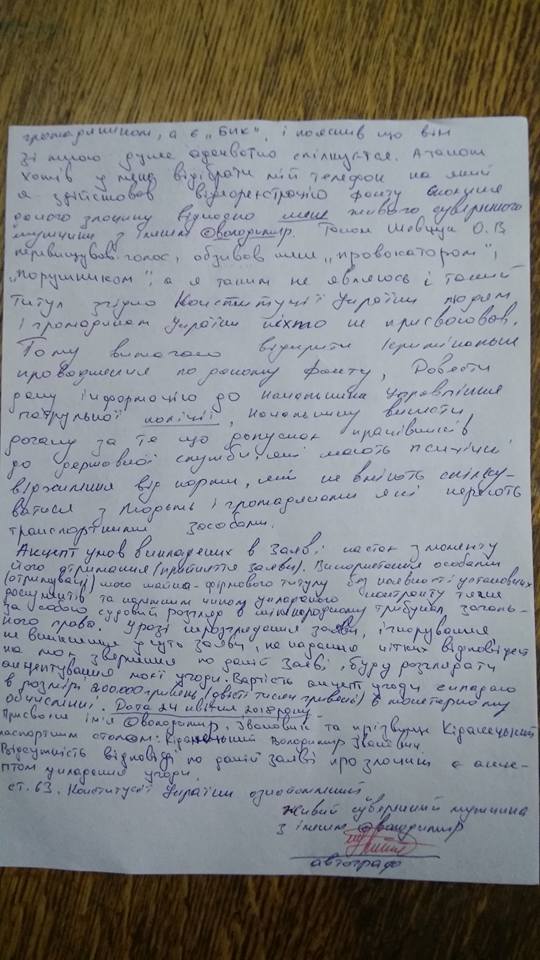 громадянином, а є „Бик", і пояснив що він
зі мною дуже адекватно спілкується. А також
хотів у мене відібрати мій телефон на який
я здійснював відеореєстрацію факту скоєння
даного злочину відносно мене живого суверенного
мужчини з іменем @володимир. Також Шевчук О.В
перевищував голос, обзивав мене „провокатором",
„порушником", а я таким не являюсь і такий
титул згідно Конституції України людям
і громадянам України ніхто не присвоював.
Тому вимагаю відкрити кримінальне
провадження по даному факту, Довести
дану інформацію до начальника управління
патрульної поліції, начальнику винести
догану за те що допускає працівників
до державної служби, які мають психічні
відхилення від норми, які не вміють спілку-
ватися з людьми і громадянами які керують
транспортними засобами.
Акцепт умов викладених в заяві настає з моменту
його отримання (прийняття заяви). Використання особами
(отримувачі) мого майна-фірмового титулу без наявності установчих
документів та належним чином укладеного контракту тягне
за собою судовий розгляд в міжнародному трибуналі загаль-
ного права. У разі нерозглядання заяви, ігнорування
не вникнення у суть заяви, не надання чітких відповідей
на моє звернення по даній заяві, буду розглядати
акцептування моєї угоди. Вартість акцепт угоди складаю
в розмірі 200000 гривень (двісті тисяч гривень) в монетарному
обчислені. Дата 24 квітня 2018 року.
Присвоєне ім'я @володимир, Іванович та прізвище
паспортним столом: Володимир Іванович.
Відсутність відповіді по даній заяві про злочин є акце-
птом укладення угоди.
ст. 63. Конституції України ознайомлений
живий суверенний мужчина
з іменем @володимир
автограф